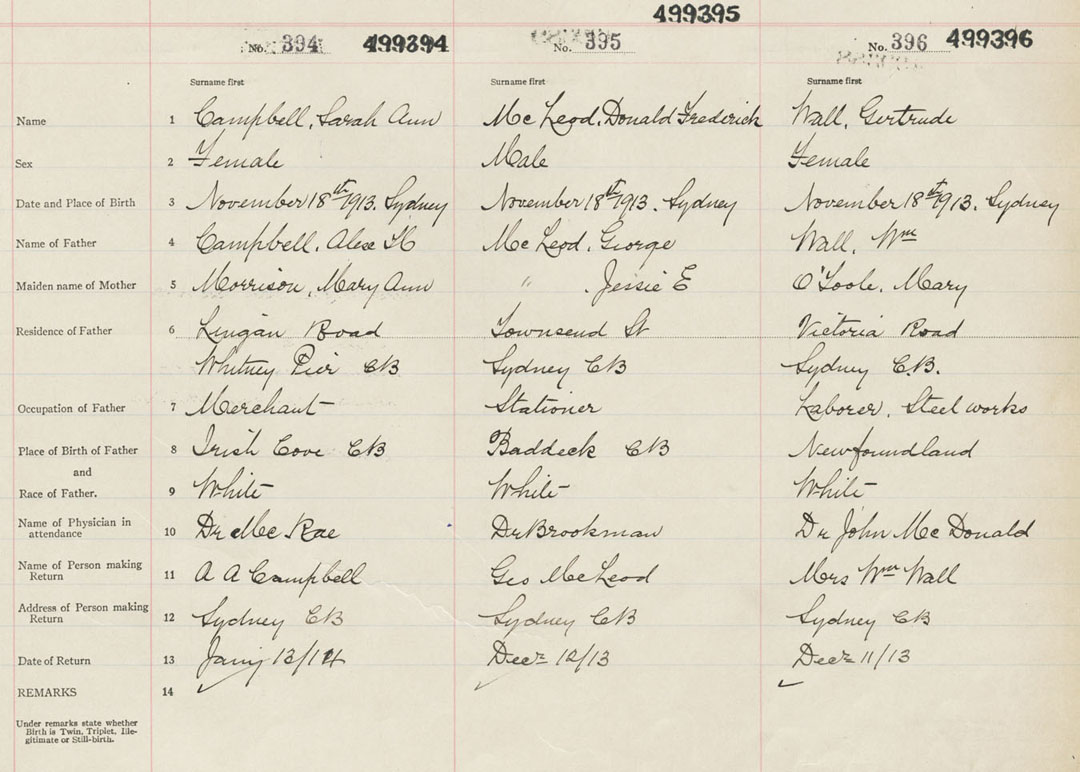 499395
No. 394 499394 No. 395 No. 396 499396
Surname first Surname first Surname first
Name 1 Campbell, Sarah Ann Mc Leod, Donald Frederick Wall, Gertrude
Sex 2 Female Male Female
Date and Place of Birth 3 November 18th 1913. Sydney November 18th 1913. Sydney November 18th 1913. Sydney
Name of Father 4 Campbell, Alex Mc Leod, George Wall, Wm
Maiden name of Mother 5 Morrison, Mary Ann " , Jessie E O'Toole, Mary
Residence of Father 6 Lingan Road Townsend St Victoria Road
Whitney Pier CB Sydney CB Sydney C.B.
Occupation of Father 7 Merchant Stationer Laborer, Steel works
Place of Birth of Father 8 Irish Cove CB Baddeck CB Newfoundland
and
Race of Father. 9 White White White
Name of Physician in
attendance 10 Dr McRae Dr Brookman Dr John McDonald
Name of Person making
Return 11 A A Campbell Geo McLeod Mrs Wm Wall
Address of Person making
Return 12 Sydney CB Sydney CB Sydney CB
Date of Return 13 13/14 Decr 12/13 Decr 11/13
REMARKS 14
Under remarks state whether
Birth is Twin, Triplet, Ille-
gitimate or Still-birth.